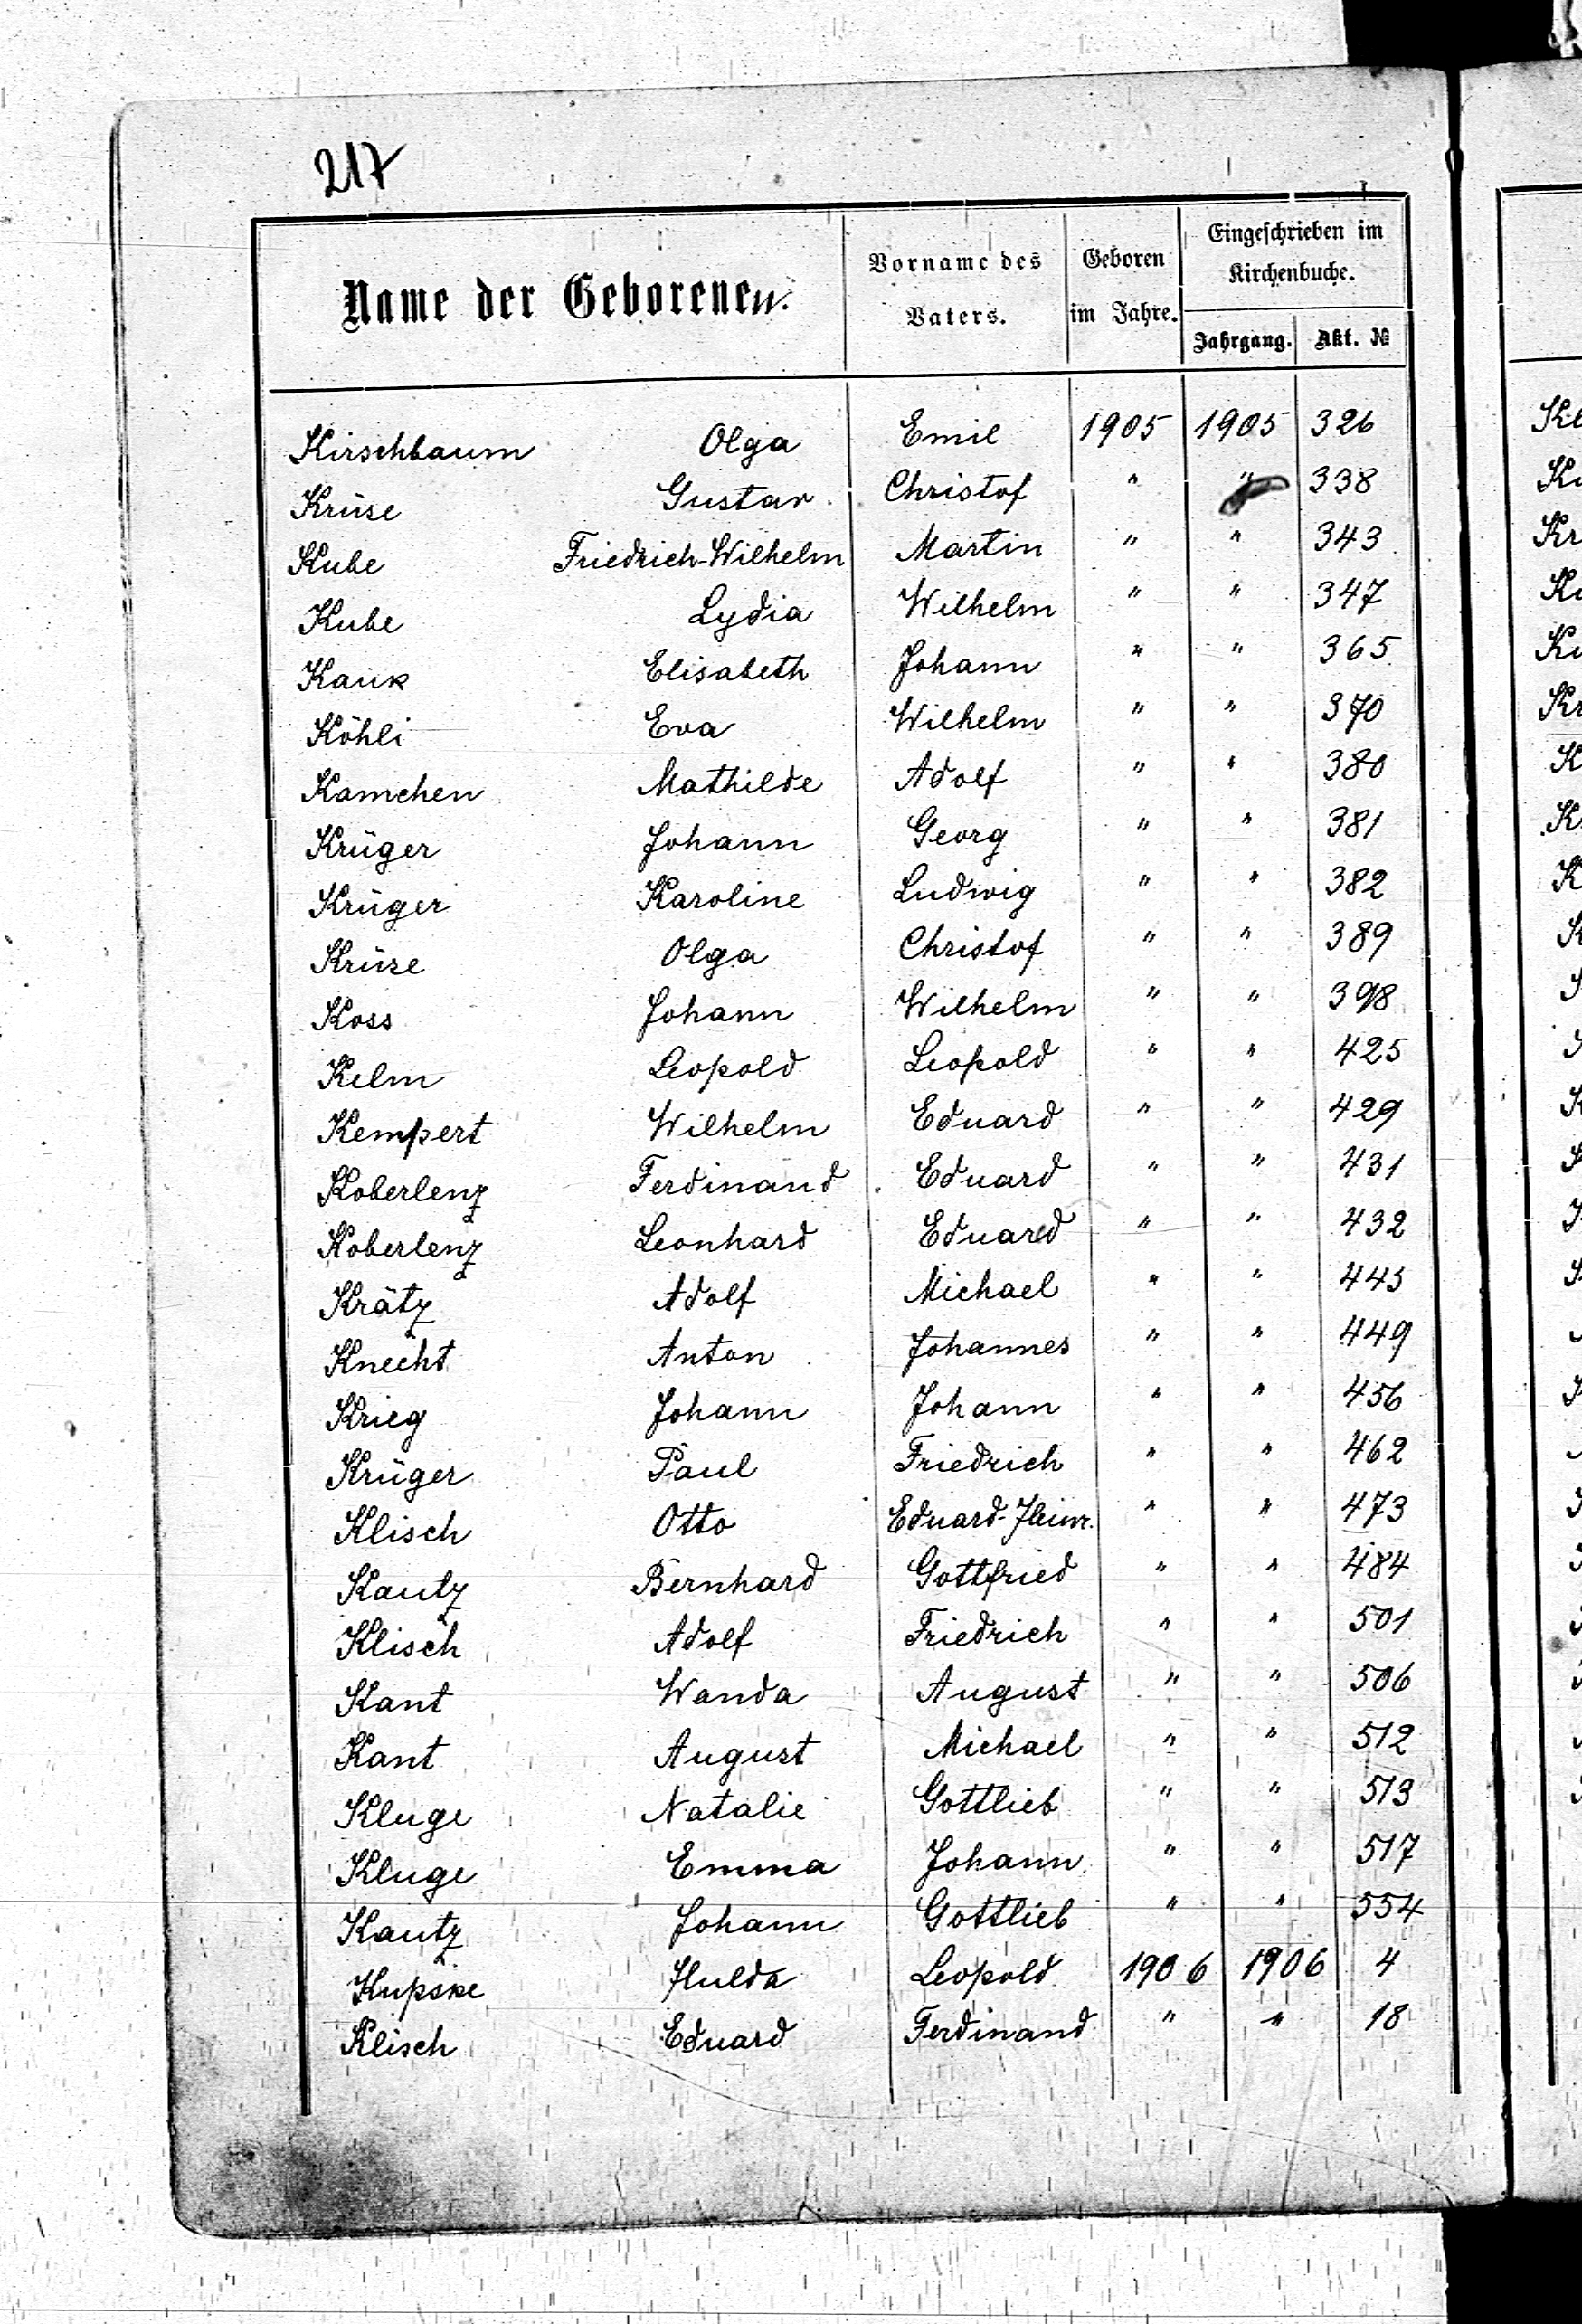 217
Name der Geborenen.
Vorname des Vaters.
Geboren im Jahre.
Eingeschrieben im Kirchenbuche.
Jahrgang. Akt. №
Kirschbaum Olga Emil 1905 1905 326
Krüse Gustav Christof " " 338
Kube Friedrich-Wilhelm Martin " " 343
Kube Lydia Wilhelm " " 347
Kauk Elisabeth Johann " " 365
Köhli Eva Wilhelm " " 370
Kamchen Mathilde Adolf " " 380
Krüger Johann Georg " " 381
Krüger Karoline Ludwig " " 382
Krüse Olga Christof " " 389
Koss Johann Wilhelm " " 398
Kelm Leopold Leopold " " 425
Kempert Wilhelm Eduard " " 429
Koberlenz Ferdinand Eduard " " 431
Koberlenz Leonhard Eduard " " 432
Krätz Adolf Michael " " 445
Knecht Anton Johannes " " 449
Krieg Johann Johann " " 456
Krüger Paul Friedrich " " 462
Klisch Otto Eduard-Heinr. " " 473
Kautz Bernhard Gottfried " " 484
Klisch Adolf Friedrich " " 501
Kant Wanda August " " 506
Kant August Michael " " 512
Kluge Natalie Gottlieb " " 513
Kluge Emma Johann " " 517
Kautz Johann Gottlieb " " 554
Kupske Hulda Leopold 1906 1906 4
Klisch Eduard Ferdinand " " 18